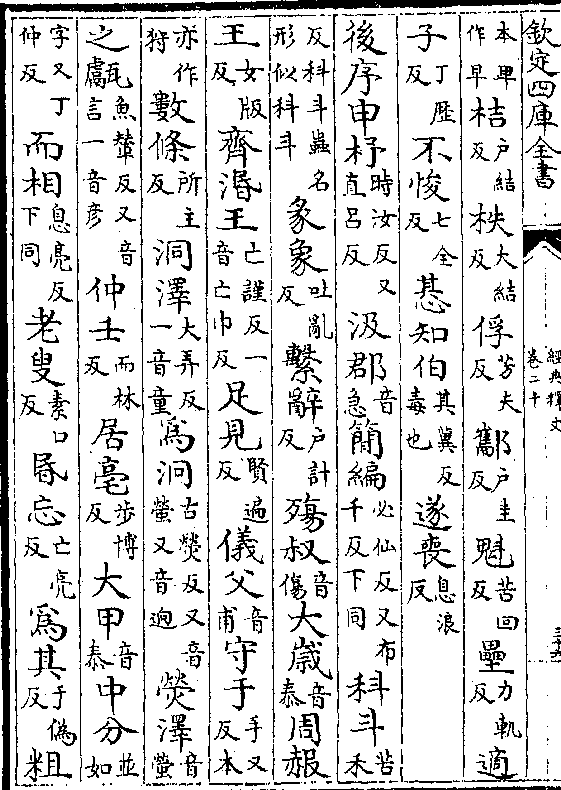 欽定四庫全書
經典釋文
卷二十
本卑作早桔戶結反柣大結反俘芳夫反酅戶圭反魁苦回反壘力軌反適
子丁歷反不悛七全反惎知伯其冀反毒也遂喪息浪反
後序申杼時汝反又直呂反汲郡音急簡編必仙反又布千反下同科斗苦禾
反科斗蟲名形似科斗彖象吐亂反繫辭戶計反殤叔音傷大歲音泰周赧
王女版反齊湣王亡謹反一音亡巾反足見賢遍反儀父音甫守于手又反本
亦作狩數條所主反洞澤大弄反一音童爲泂古熒反又音螢又音迥熒澤音螢
之甗魚輦反又音言一音彥仲壬而林反居亳步博反大甲音泰中分並如
字又丁仲反而相息亮反下同老叟素口反昬忘亡亮反爲其于僞反粗